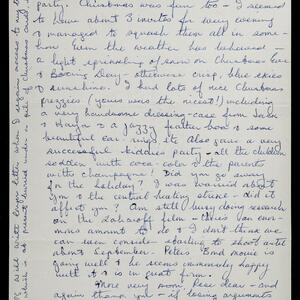 party. Christmas was fun too - I seemed
to have about 3 invites for every evening
& managed to squash them all in some-
how. Even the weather has behaved
a light sprinkling of snow on Christmas Eve
& Boxing Day - otherwise crisp, blue skies
& sunshine. I had lots of nice Christmas
prezzies (yours was the nicest!) including
a very handsome dressing-case from
& a jazzy feather boa & some
beautiful ear-rings. It also gave a very
successful kiddies party - all the children
sodden with coca-cola & the parents
with champagne! Did you go away
for the holiday? I was worried about
you & the central heating strike - did it
affect you? Am still busy doing research
on the film - there's an enor-
mous amount to do & I don't think we
can even consider starting to shoot until
about September. Peter's Bond movie is
going well & he seems immensely happy
with it & is in great form.
More very soon Rose dear - and
again thank you - if losing arguments